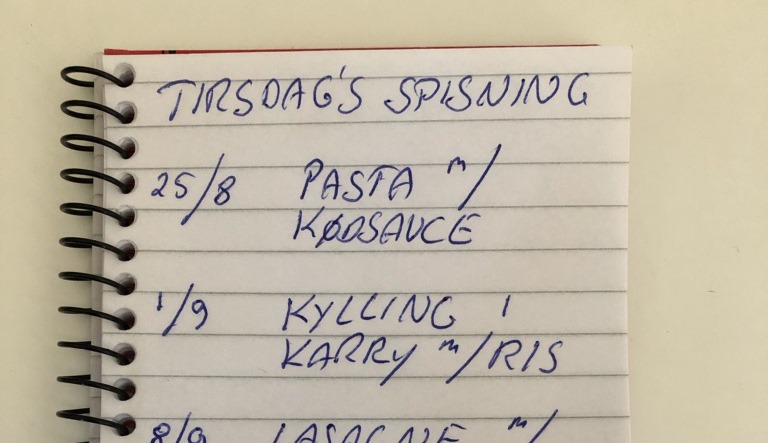 TIRSDAG'S SPISNING
25/8 PASTA m/
KØDSAUCE
1/9 KYLLING I
KARRY m/RIS
8/9 LASAGNE m/